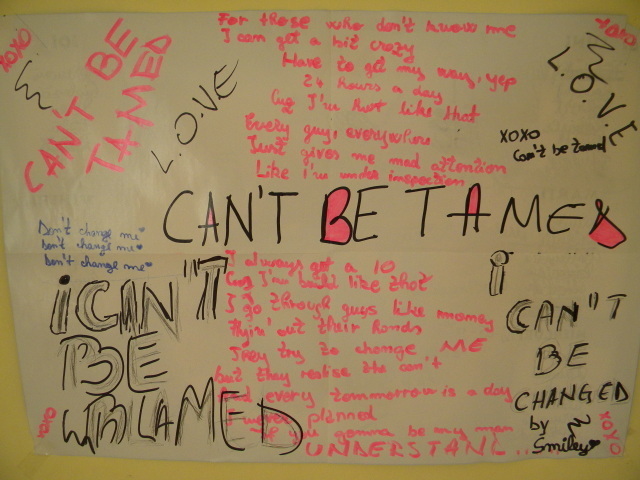 XOXO
CAN'T BE
TAMED
L.O.V.E
For those who don't know me
I can get a bit crazy
Have to get my way, yep
24 hours a day
Cuz I'm Hot like that
Every guy, everywhere
Just gives me mad attention
Like I'm under inspection
XOXO
L.O.V.E
XOXO
Can't be tamed
CAN'T BE TAMED
Don't change me
Don't change me
Don't change me
I always get a 10
Cuz I'm build like that
I go through guys like money
Flyin' out their hands
They try to change ME
but they realise the can't
And every tommorrow is a day
I never planned
If you gonna be my man
UNDERSTAND...
i CAN"T
BE
BLAMED
XOXO
i
CAN"T
BE
CHANGED
by
Smiley
XOXO